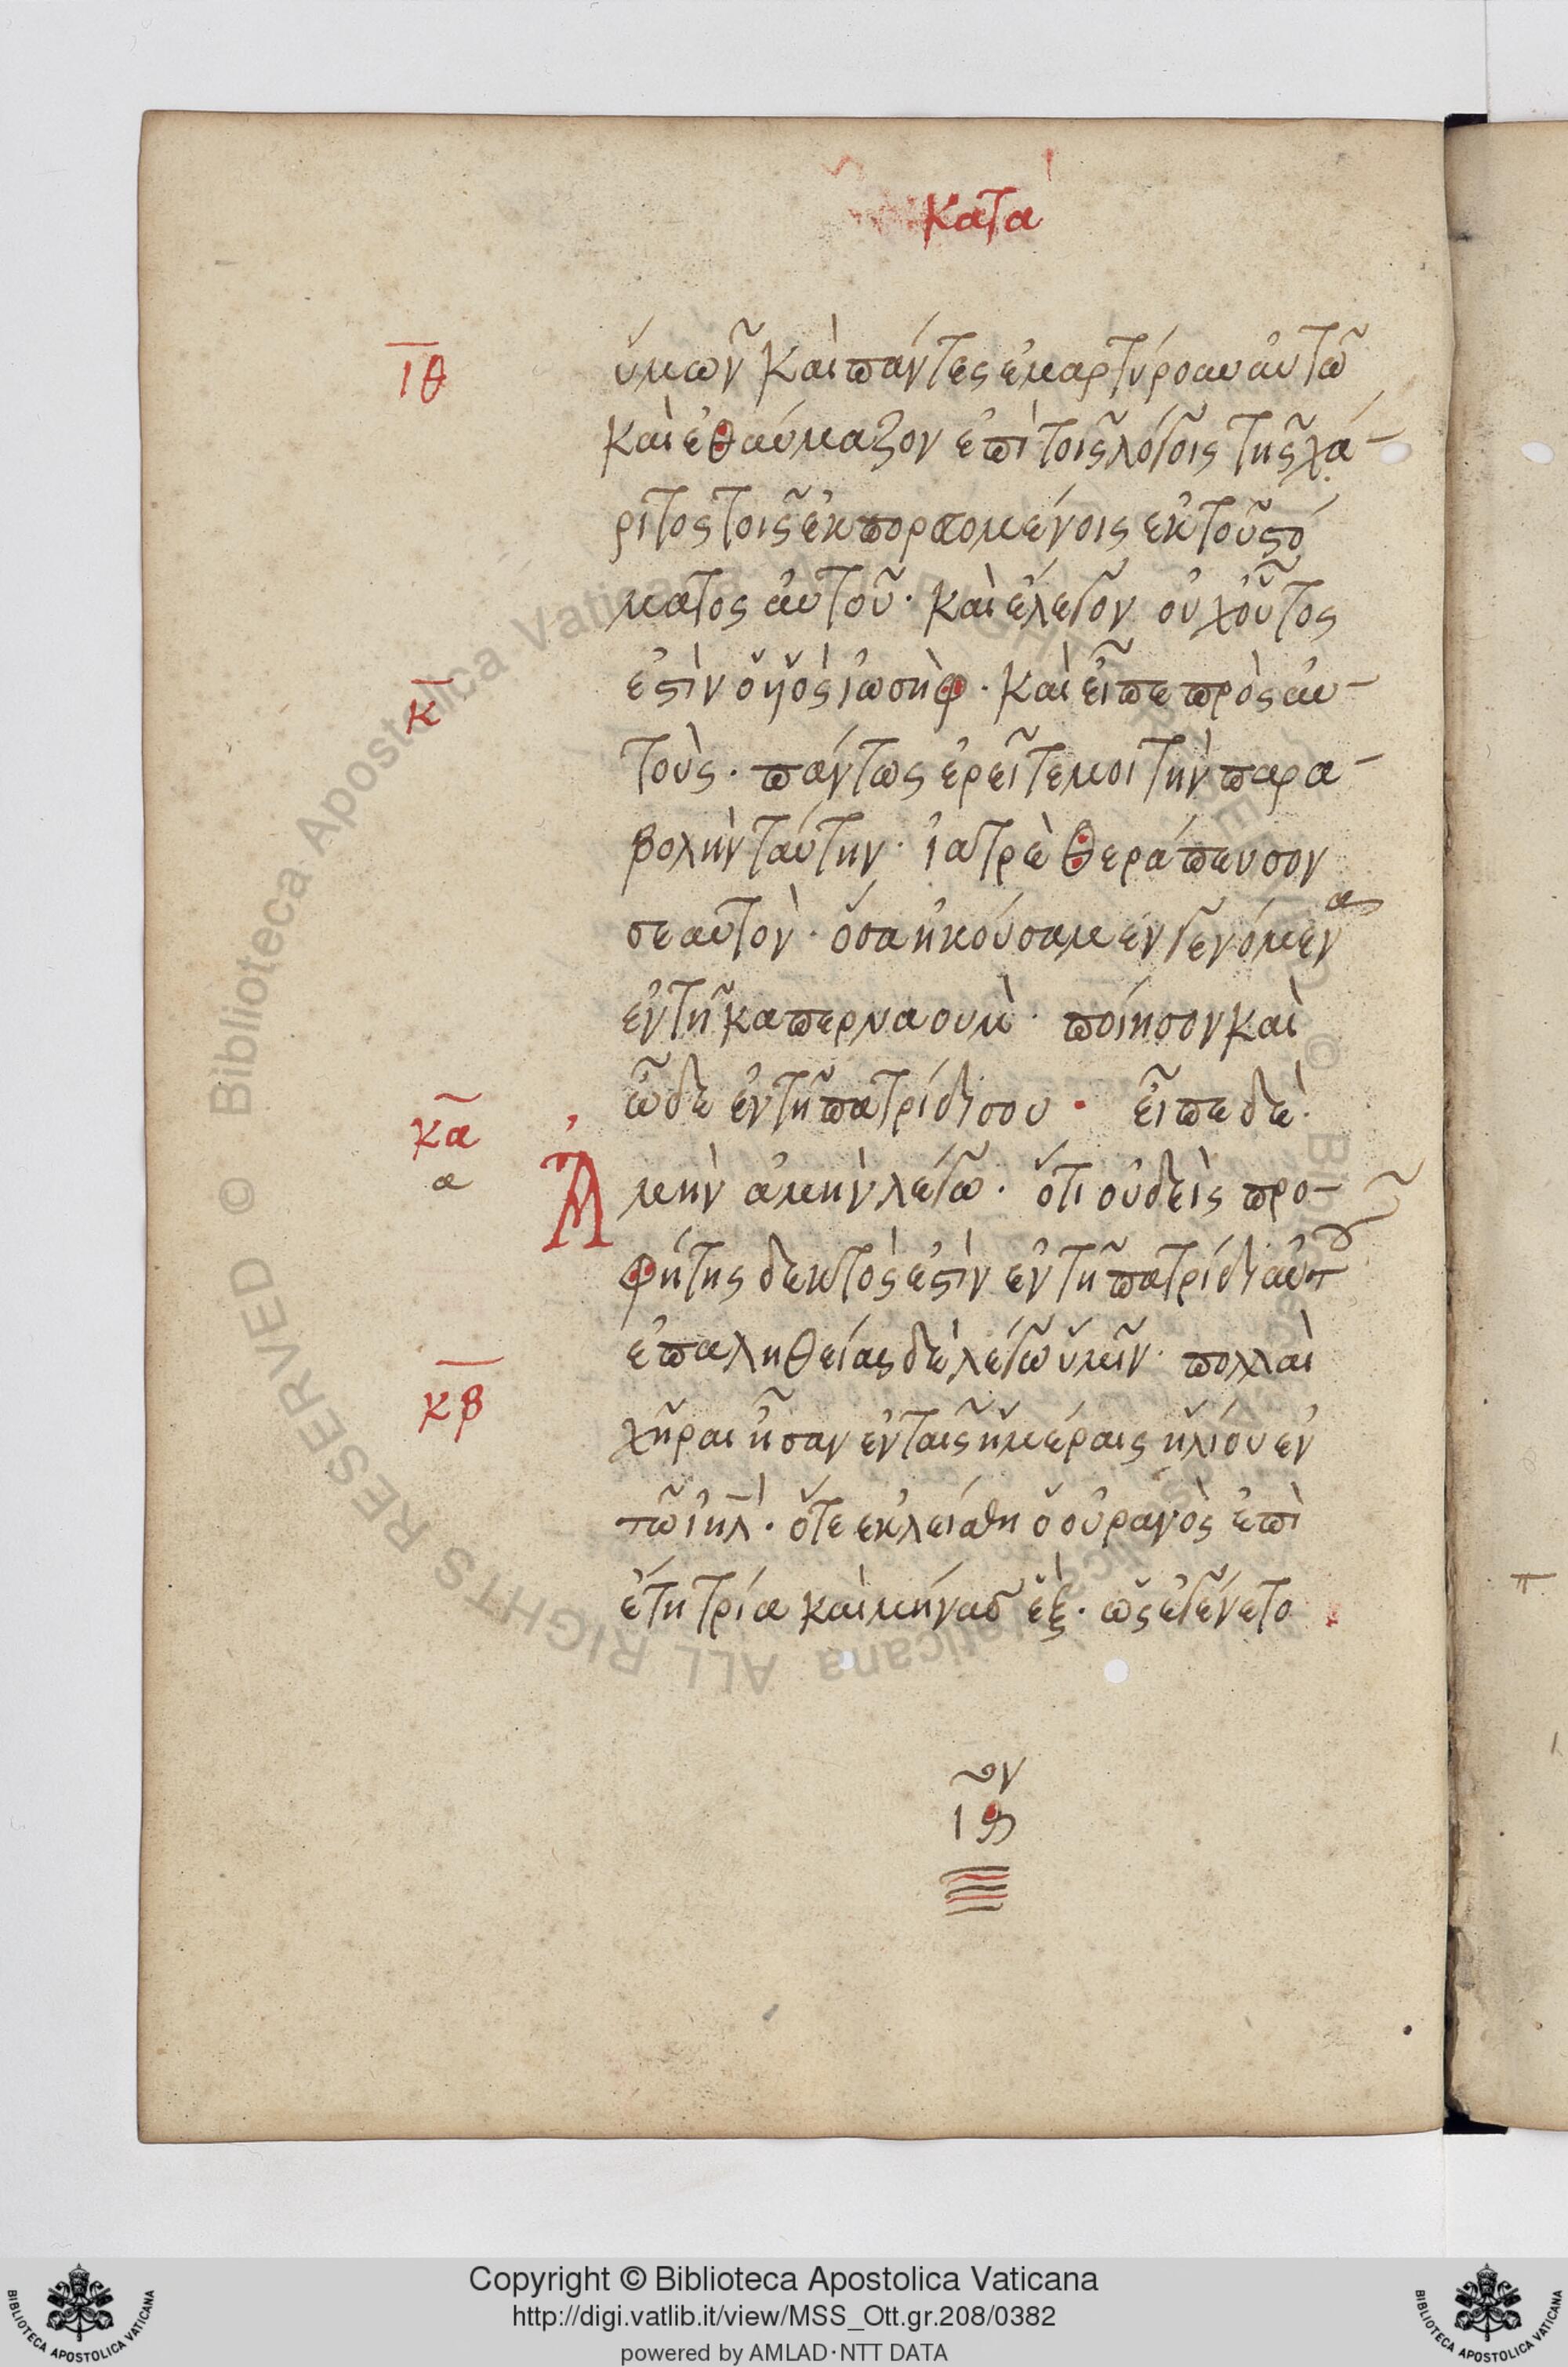 κατὰ
ιθ
ὑμῶν καὶ πάντες ἐμαρτύρουν αὐτῶ
καὶ ἐθαύμαζον ἐπὶ τοῖς λόγοις τῆς χά-
ριτος τοῖς ἐκπορευομένοις ἐκ τοῦ στό
ματος αὐτοῦ· καὶ ἔλεγον οὐχ οὗτος
κ
ἐστὶν ὁ ὑιὸς ἰωσὴφ· καὶ εἶπε πρὸς αὐ-
τοὺς· πάντως ἐρεῖτε μοι τὴν παρα-
βολὴν ταύτην· ἰατρὲ θεράπευσον
σεαυτὸν· ὅσα ἠκούσαμεν γενόμενα
ἐν τῆ καπερναουμ· ποίησον καὶ
ὧδε ἐν τῆ πατρίδι σου· εἶπε δὲ·
κα
α
Ἀμὴν ἀμὴν λέγω· ὅτι οὐδεὶς προ-
φήτης δεκτὸς ἐστὶν ἐν τῆ πατρίδι αὐτοῦ
ἐπαληθείας δὲ λέγω ὑμῖν· πολλαὶ
κβ
χῆραι ἦσαν ἐν ταῖς ἡμέραις ἡλίου ἐν
τῶ ἰηλ· ὅτε ἐκλείσθη ὁ οὐρανὸς ἐπὶ
ἔτη τρία καὶ μῆνας ἓξ· ὡς ἐγένετο
Copyright © Biblioteca Apostolica Vaticana
http://digi.vatlib.it/view/MSS_Ott.gr.208/0382
powered by AMLAD·NTT DATA
BIBLIOTECA APOSTOLICA VATICANA
BIBLIOTECA APOSTOLICA VATICANA